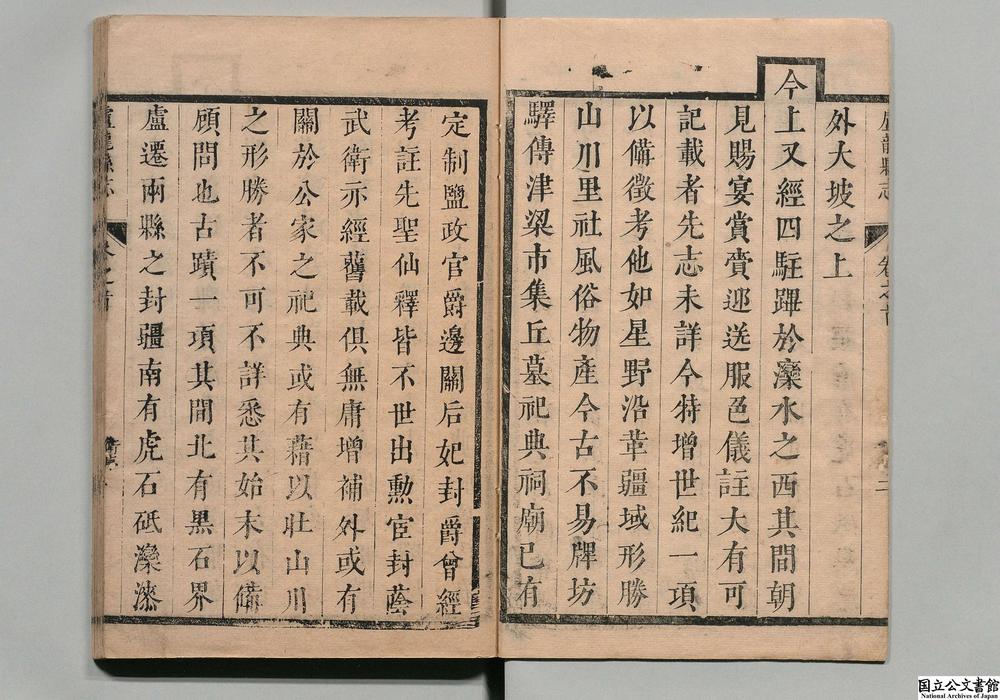 盧龍縣志
卷之首
二
外大坡之上
今上又經四駐蹕於灤水之西其間朝
見賜宴賞賚迎送服色儀註大有可
記載者先志未詳今特增世紀一項
以備徵考他如星野沿革疆域形勝
山川里社風俗物產今古不易牌坊
驛傳津梁市集丘墓祀典祠廟已有
定制鹽政官爵邊關后妃封爵曾經
考註先聖仙釋皆不世出勲宦封蔭
武衛亦經舊載俱無庸增補外或有
關於公家之祀典或有藉以壯山川
之形勝者不可不詳悉其始末以備
顧問也古蹟一項其間北有黒石界
盧遷兩縣之封疆南有虎石砥灤漆
盧龍縣志
卷之首
国立公文書館
National Archives of Japan